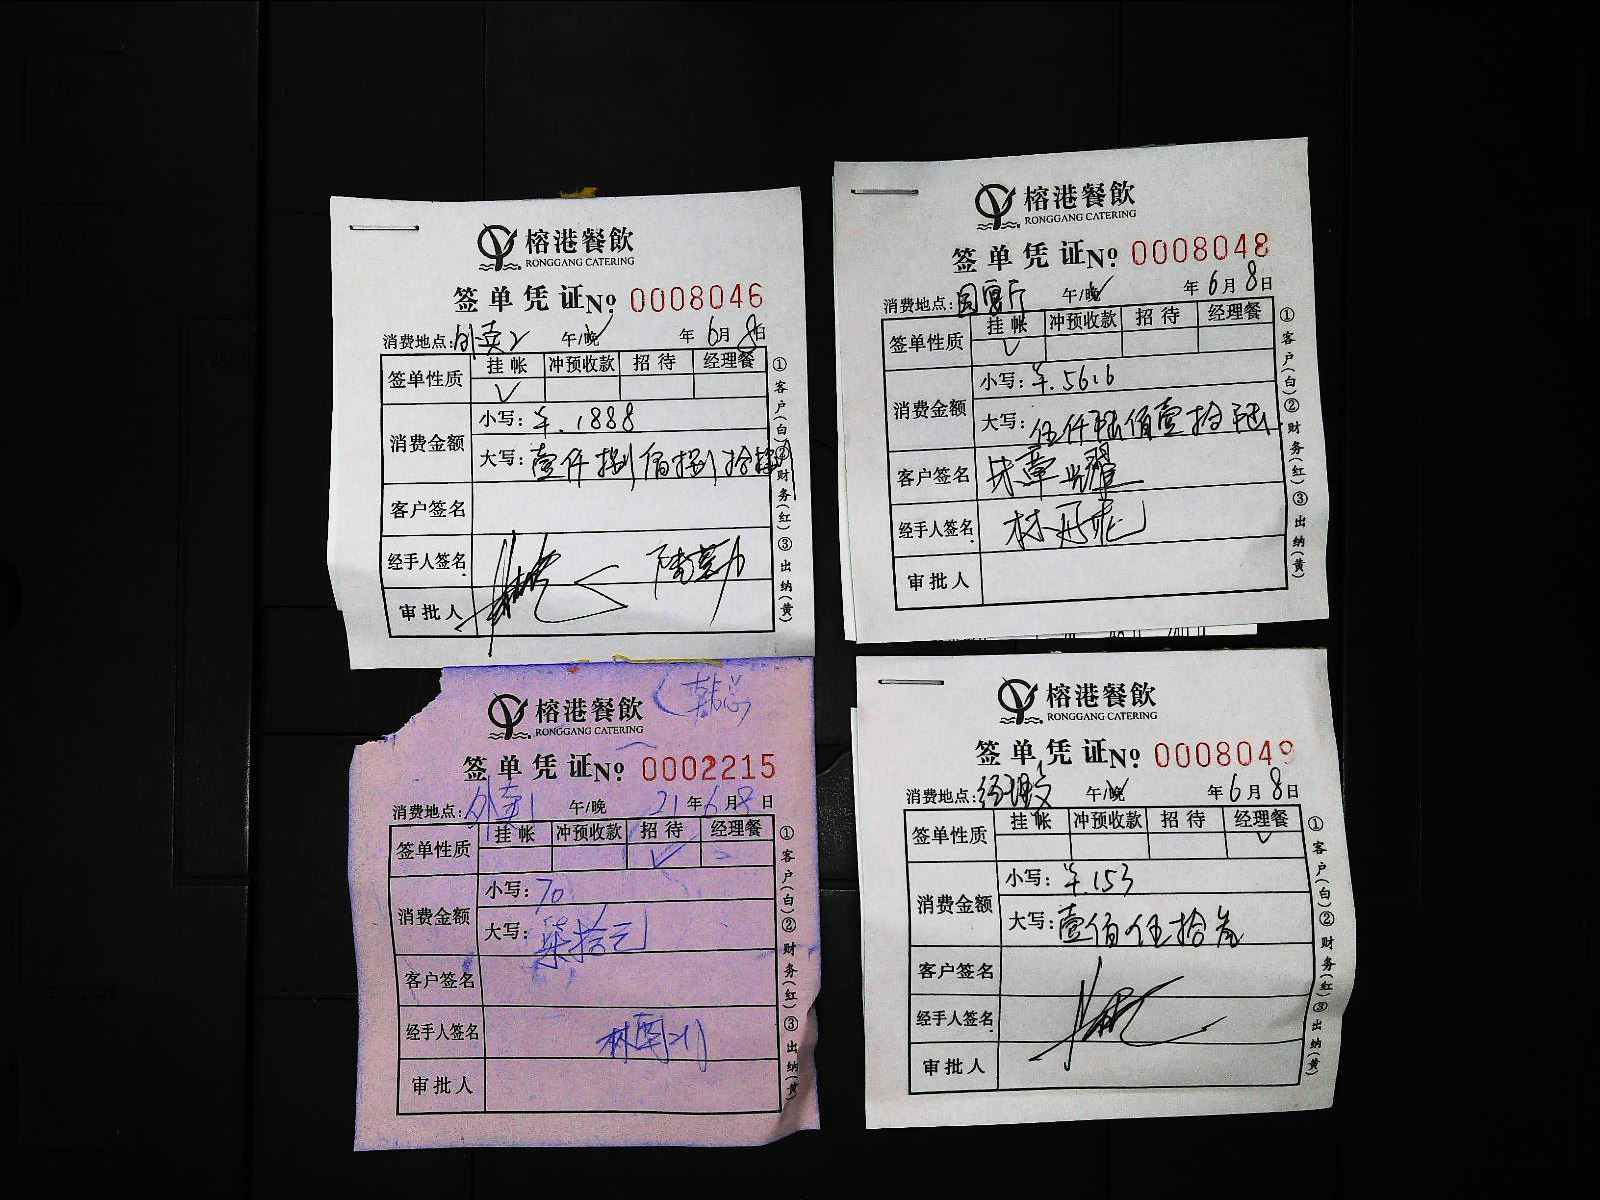 榕港餐飲
RONGGANG CATERING
签单凭证 No 0008046
消费地点: 外卖2 午/晚 年 6月 8日
签单性质 挂帐 冲预收款 招待 经理餐
消费金额
小写: ¥.1888
大写: 壹仟捌佰捌拾捌
客户签名
经手人签名
审批人
①客户(白)②财务(红)③出纳(黄)
榕港餐飲
RONGGANG CATERING
签单凭证 No 0008048
消费地点: 国宴厅 午/晚 年 6月 8日
签单性质 挂帐 冲预收款 招待 经理餐
消费金额
小写: ¥.5616
大写: 伍仟陆佰壹拾陆
客户签名
经手人签名
审批人
①客户(白)②财务(红)③出纳(黄)
榕港餐飲
RONGGANG CATERING
签单凭证 No 0002215
消费地点: 外卖1 午/晚 21年 6月 8日
签单性质 挂帐 冲预收款 招待 经理餐
消费金额
小写: 70
大写: 柒拾元
客户签名
经手人签名
审批人
①客户(白)②财务(红)③出纳(黄)
榕港餐飲
RONGGANG CATERING
签单凭证 No 0008049
消费地点: 午/晚 年 6月 8日
签单性质 挂帐 冲预收款 招待 经理餐
消费金额
小写: ¥.153
大写: 壹佰伍拾叁
客户签名
经手人签名
审批人
①客户(白)②财务(红)③出纳(黄)